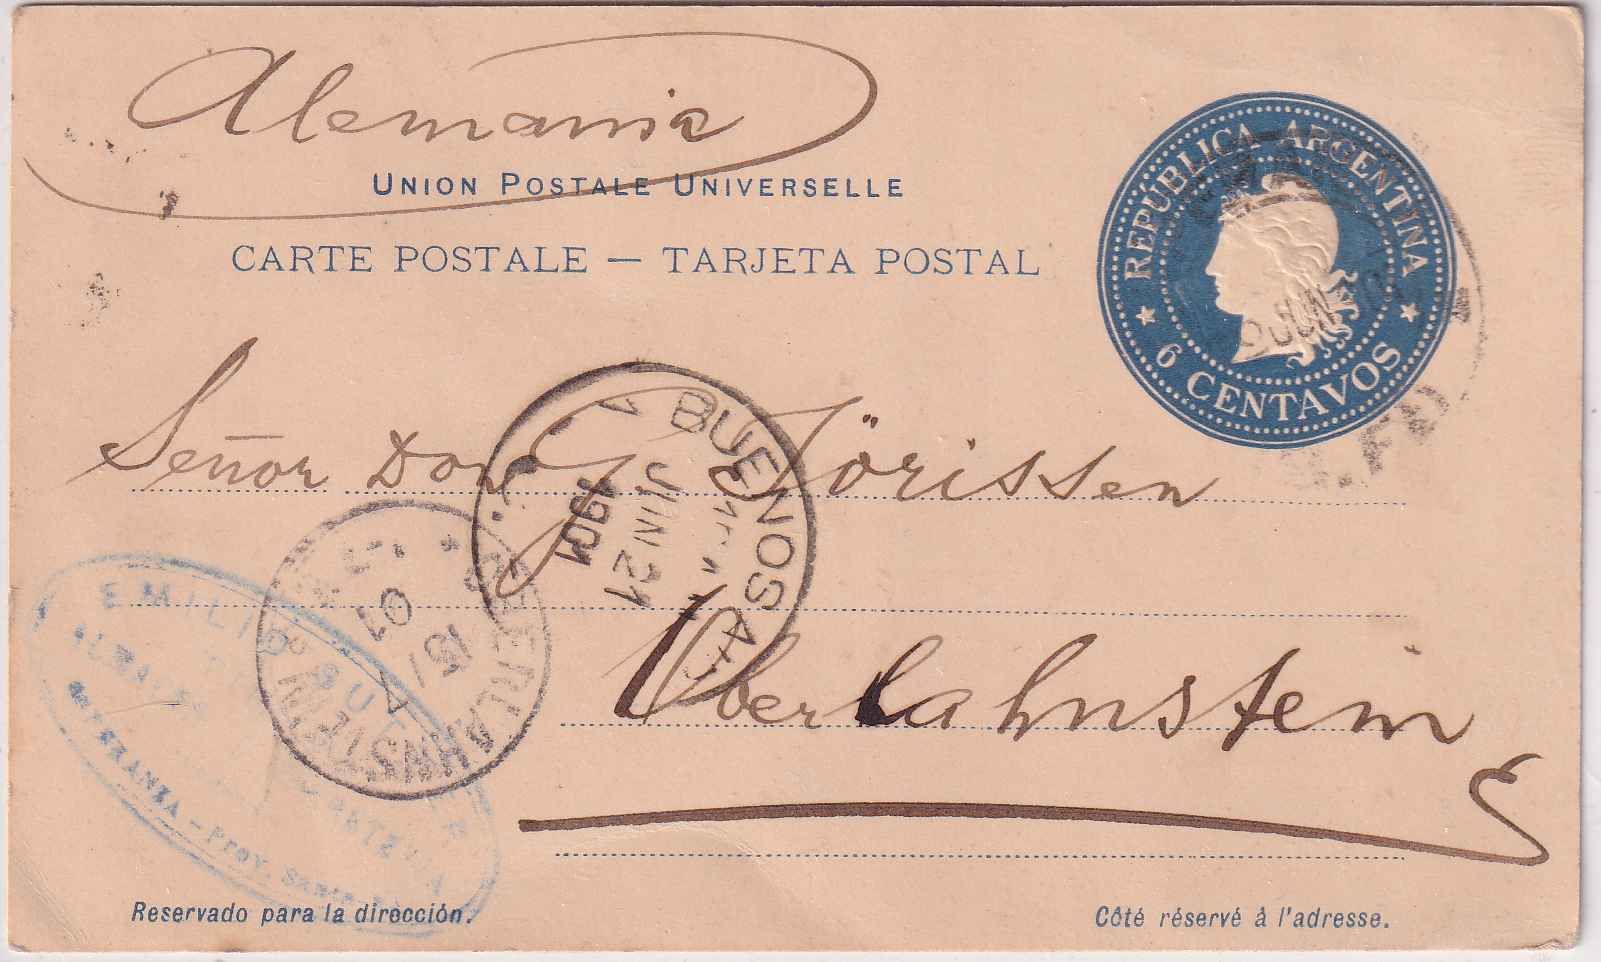 Alemania
UNION POSTALE UNIVERSELLE
CARTE POSTALE — TARJETA POSTAL
REPÚBLICA ARGENTINA
6 CENTAVOS
JUN
Señor Don J. Jörissen
BUENOS
JUN 21
1901
OBERLAHNSTEIN
15/7
01
Oberlahnstein
EMILIO SUTTER
PROV. SANTA
Reservado para la dirección.
Côté réservé à l'adresse.